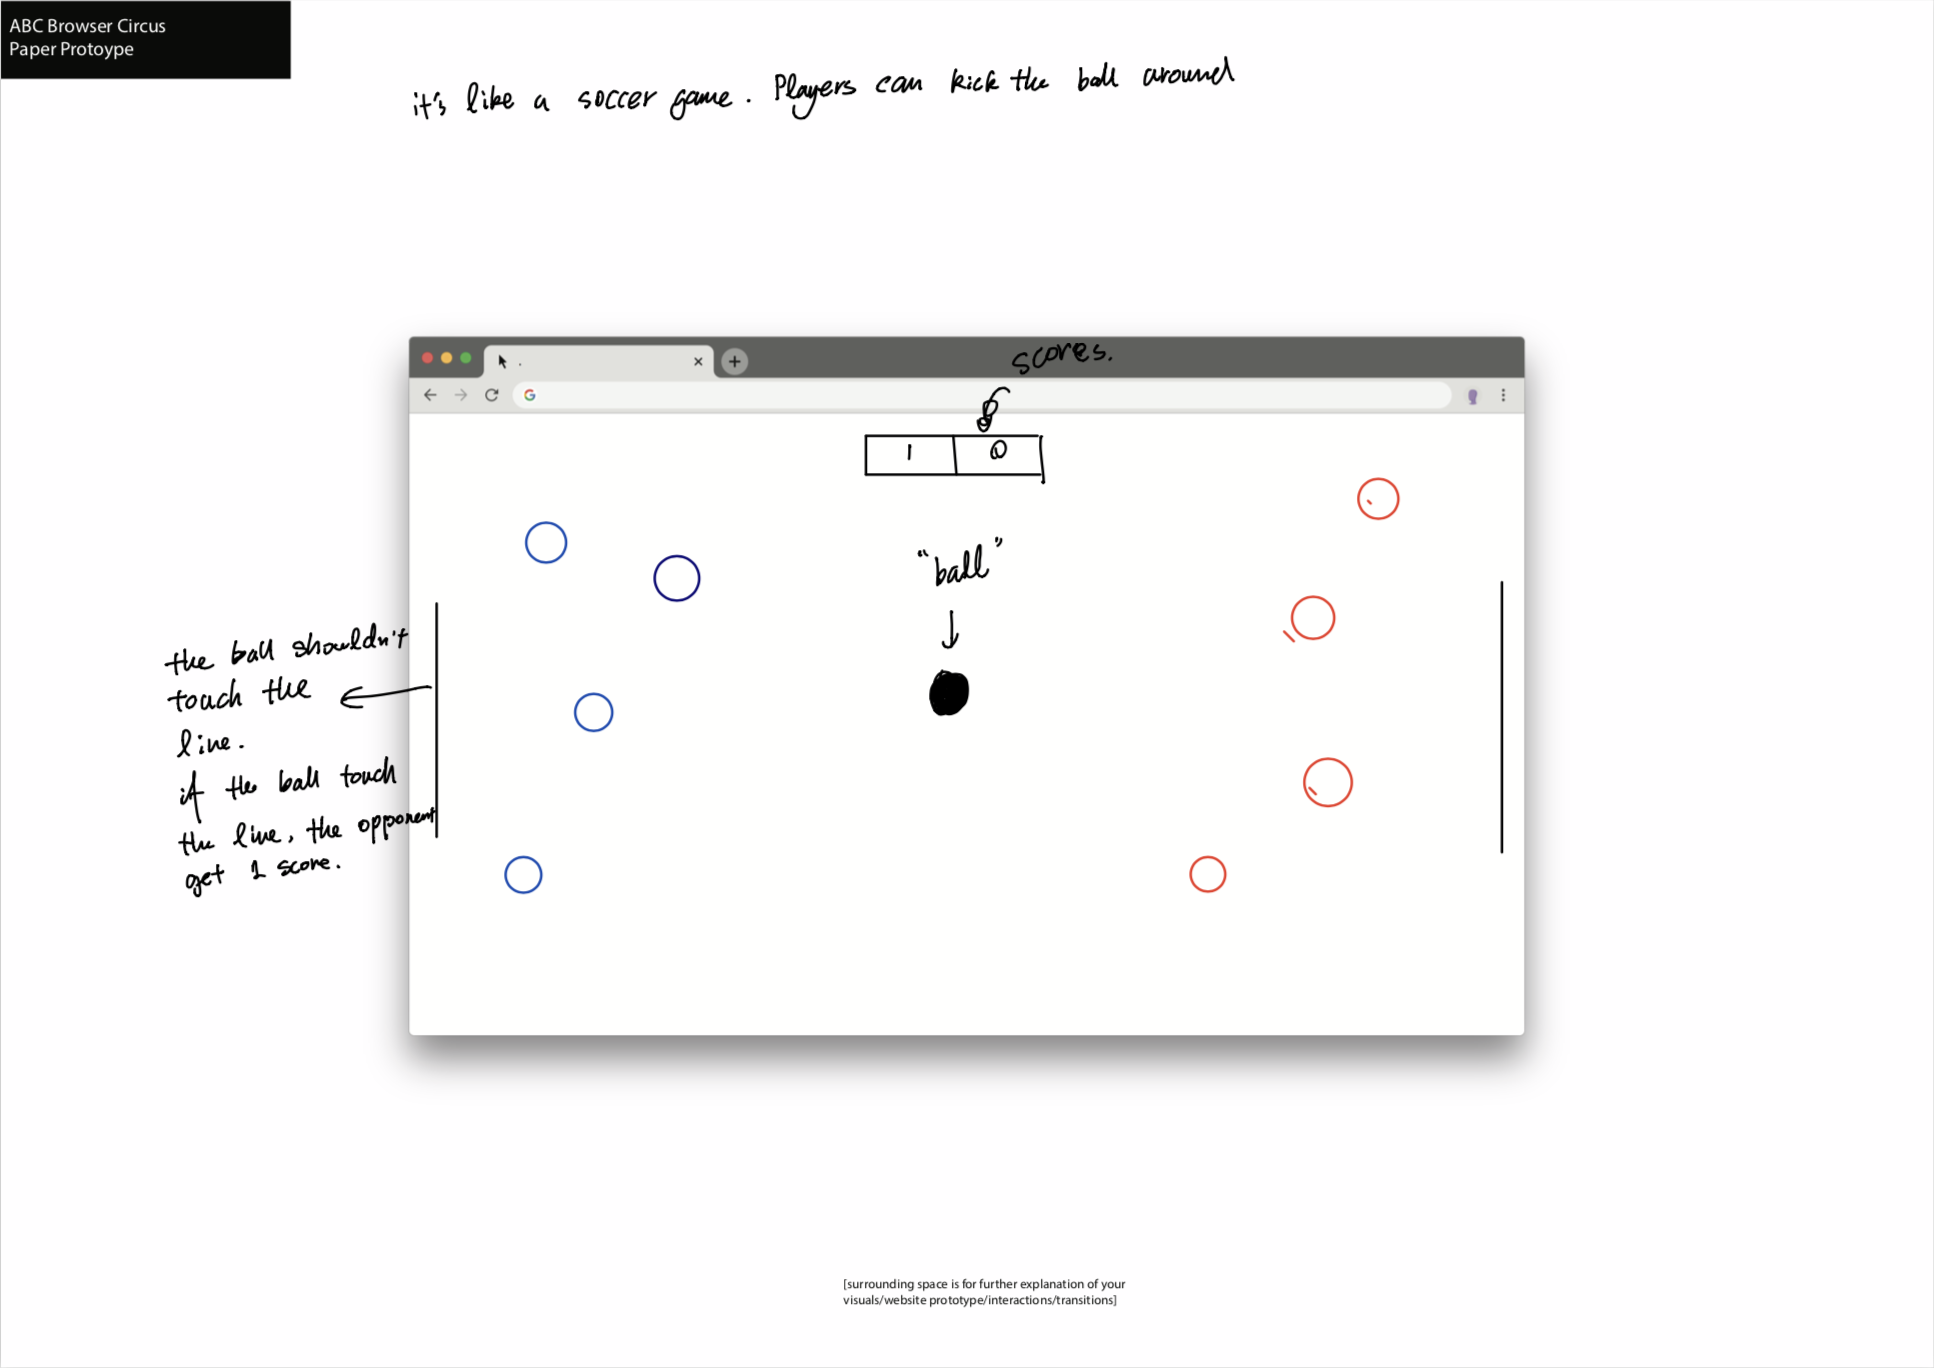 ABC Browser Circus
Paper Protoype
it's like a soccer game. Players can kick the ball around
scores.
1 0
"ball"
the ball shouldn't
touch the
line.
if the ball touch
the line, the opponent
get 1 score.
[surrounding space is for further explanation of your
visuals/website prototype/interactions/transitions]